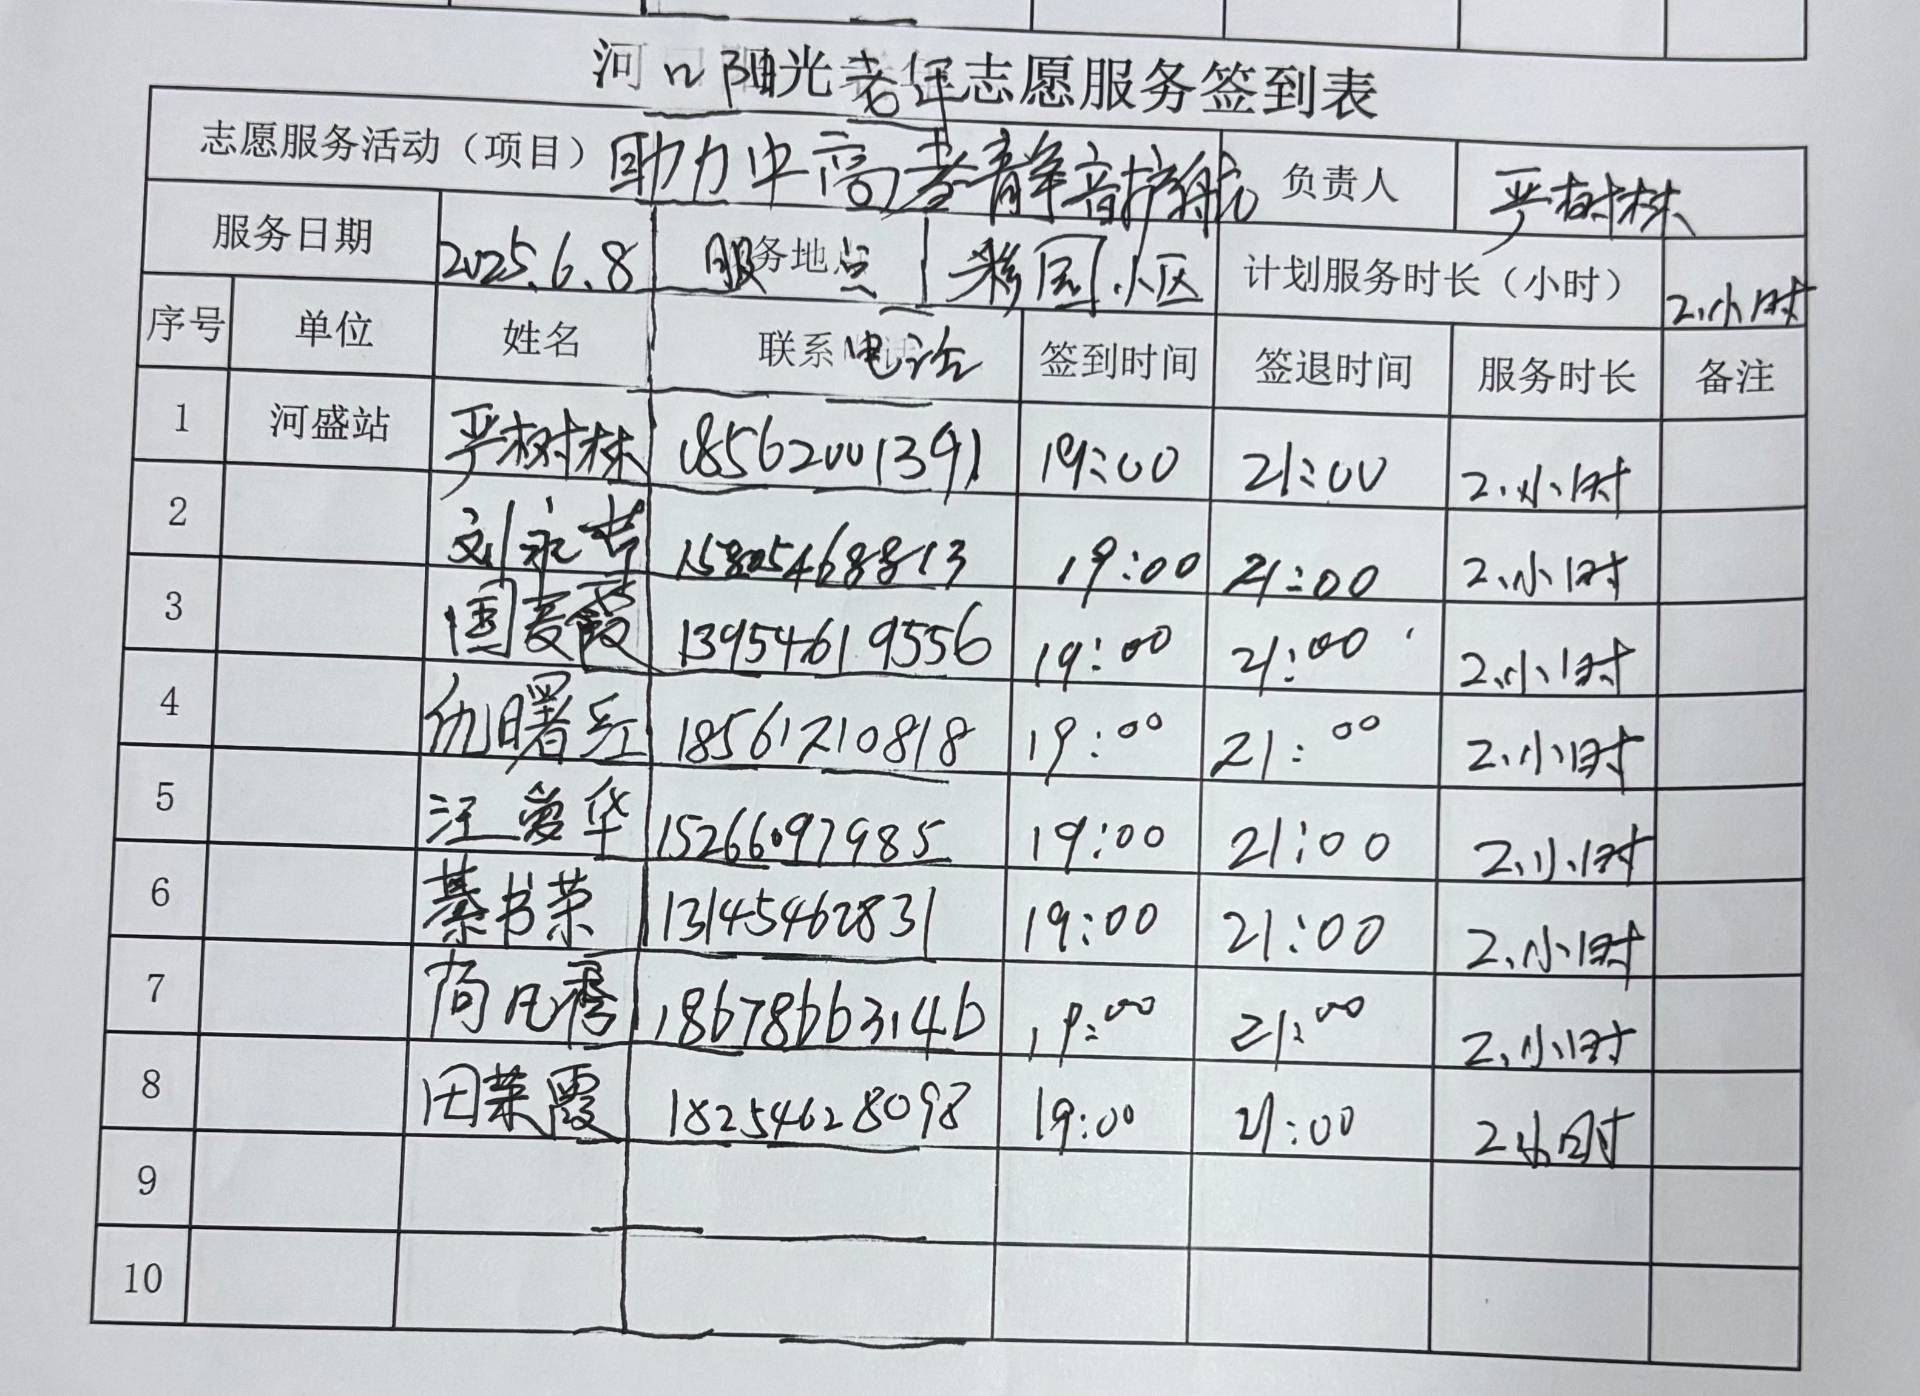 河口阳光老年志愿服务签到表
志愿服务活动（项目） 助力中高考静音护航 负责人 严树林
服务日期 2025.6.8 服务地点 彩园小区 计划服务时长（小时） 2小时
序号 单位 姓名 联系电话 签到时间 签退时间 服务时长 备注
1 河盛站 严树林 18562001391 19:00 21:00 2小时
2 刘永吉 15805468813 19:00 21:00 2小时
3 国秀霞 13954619556 19:00 21:00 2小时
4 仇曙红 18561210818 19:00 21:00 2小时
5 汪爱华 15266097985 19:00 21:00 2小时
6 綦书荣 13145462831 19:00 21:00 2小时
7 尚凡秀 18678663146 19:00 21:00 2小时
8 田荣霞 18254628098 19:00 21:00 2小时
9
10